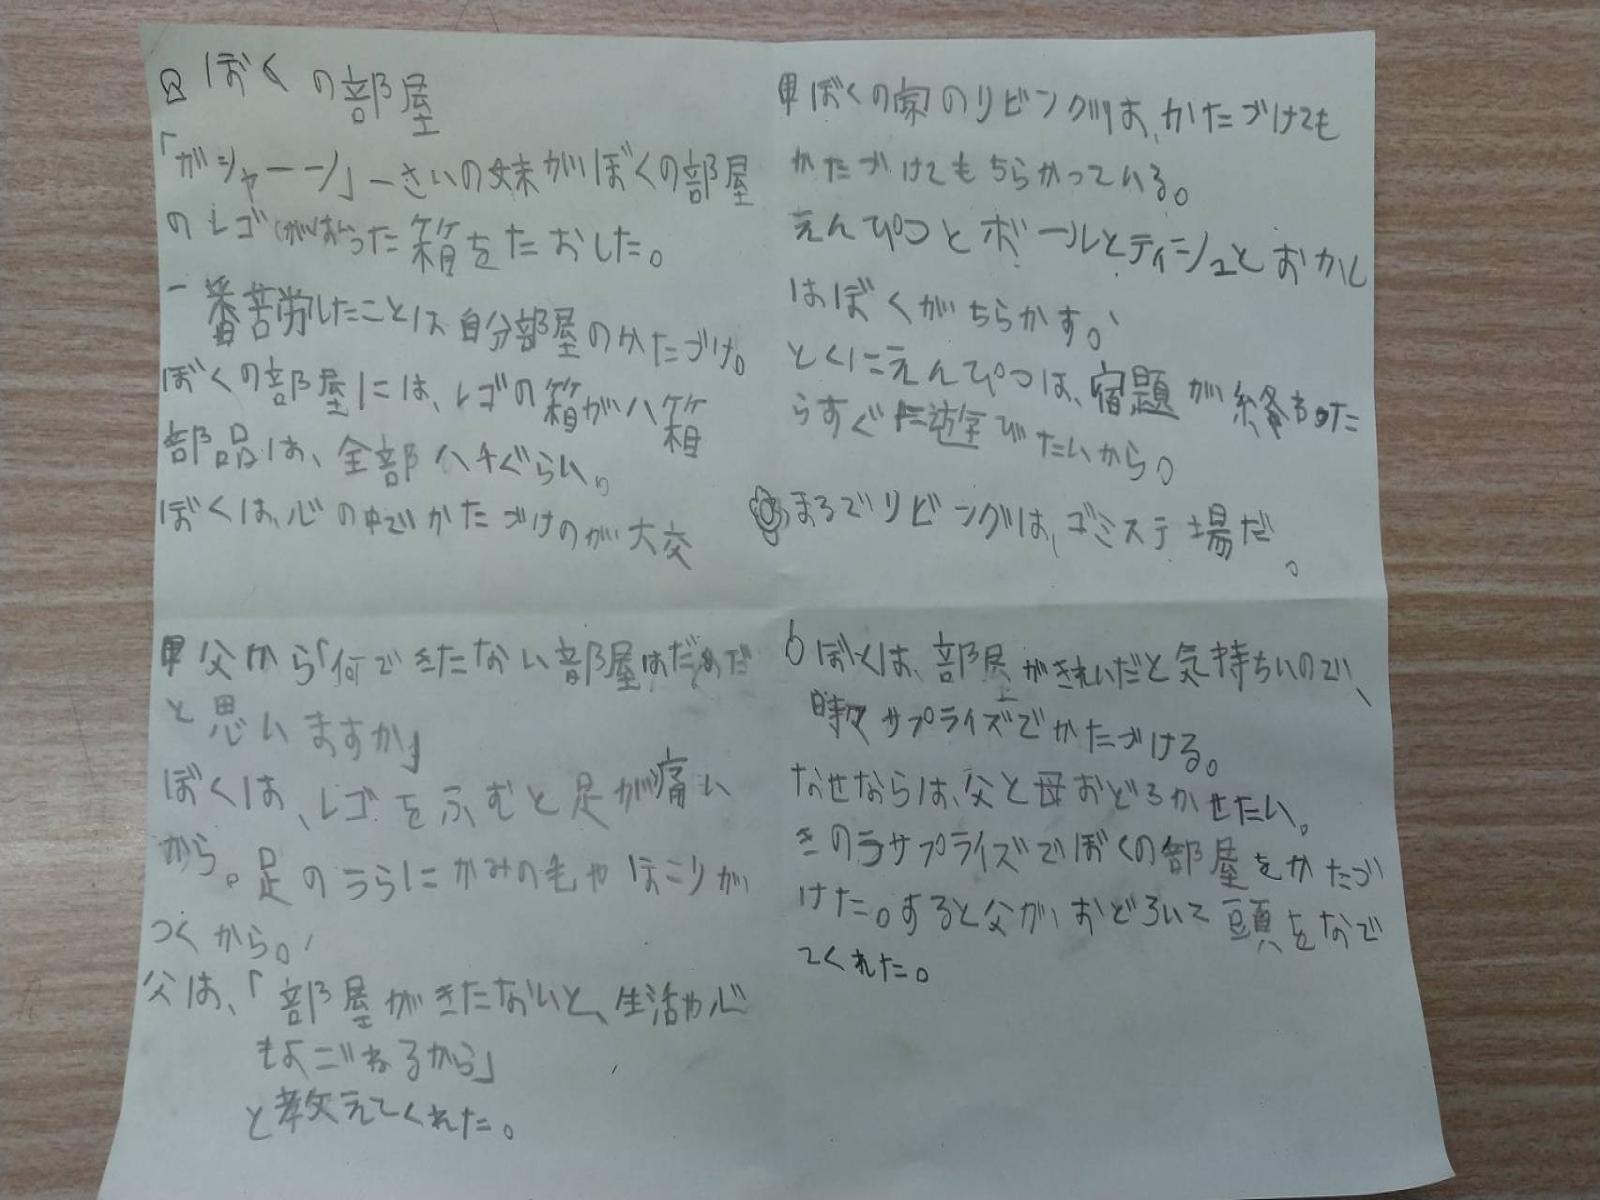 ぼくの部屋
「ガシャーン」一さいの妹がぼくの部屋
のレゴがはいった箱をたおした。
一番苦労したことは自分部屋のかたづけ。
ぼくの部屋には、レゴの箱が八箱
部品は、全部八千ぐらい。
ぼくは、心の中でかたづけのが大交
中ぼくの家のリビングは、かたづけても
かたづけてもちらかっている。
えんぴつとボールとティシュとおかし
はぼくがちらかす。
とくにえんぴつは、宿題が終わった
らすぐに遊びたいから。
まるでリビングは、ゴミステ場だ。
中父から「何できたない部屋はだめだ
と思いますか」
ぼくは、レゴをふむと足が痛い
から。足のうらにかみの毛やほこりが
つくから。
父は、「部屋がきたないと、生活や心
もよごれるから」
と教えてくれた。
ぼくは、部屋がきれいだと気持ちいので、
時々サプライズでかたづける。
なせならは、父と母おどろかせたい。
きのうサプライズでぼくの部屋をかたづ
けた。すると父が、おどろいて頭をなで
てくれた。